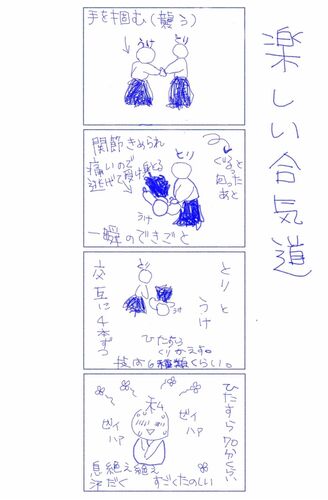 楽しい合気道
手を掴む(襲う)
うけ
とり
関節きめられ
痛いので
逃げて受け身とる
とり
ぐるっと
回った
あと
うけ
一瞬のできごと
とり
うけ
とりと
うけ
交互に4本ずつ
ひたすら
くりかえす。
技は6種類くらい。
ひたすら70分くらい
私
ゼイ
ハァ
ゼイ
ハァ
息絶え絶え
汗だく
すごくたのしい